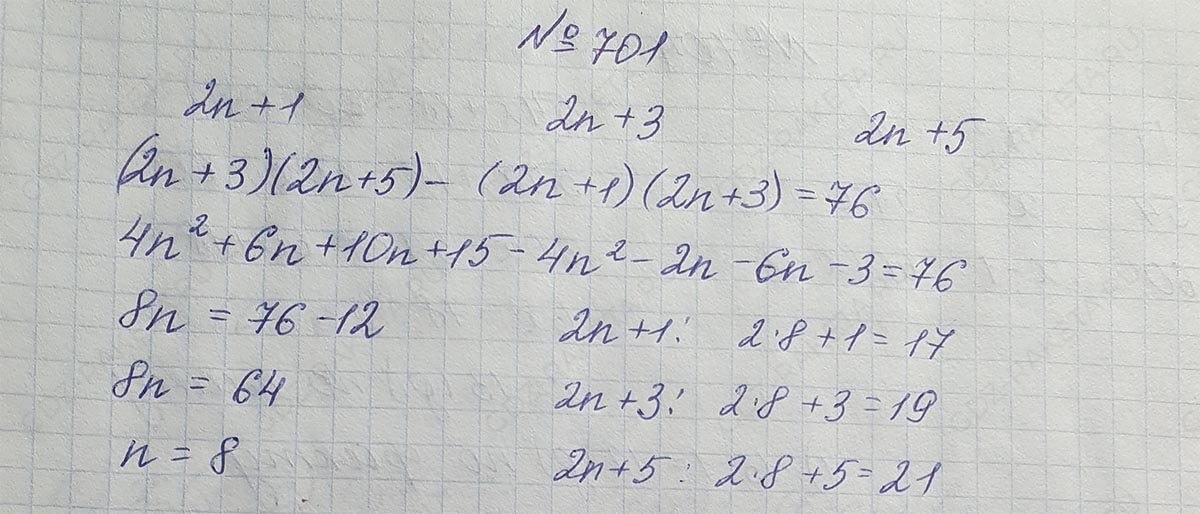 № 701
2n + 1 2n + 3 2n + 5
(2n + 3)(2n + 5) - (2n + 1)(2n + 3) = 76
4n² + 6n + 10n + 15 - 4n² - 2n - 6n - 3 = 76
8n = 76 - 12 2n + 1: 2·8 + 1 = 17
8n = 64 2n + 3: 2·8 + 3 = 19
n = 8 2n + 5: 2·8 + 5 = 21